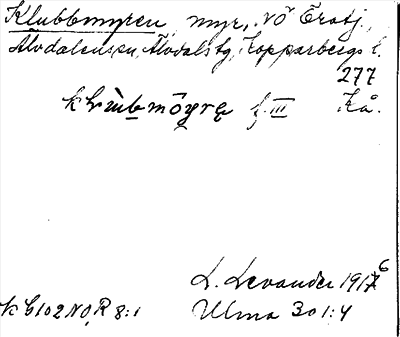 Klubbmyren, myr, NÖ Trotj.,
Älvdalens sn, Älvdals tg, Kopparbergs l.
277
klrùbmöyrę f. III Kå.
L. Levander 1916
k G102 NO, R 8:1 Ulma 301:4